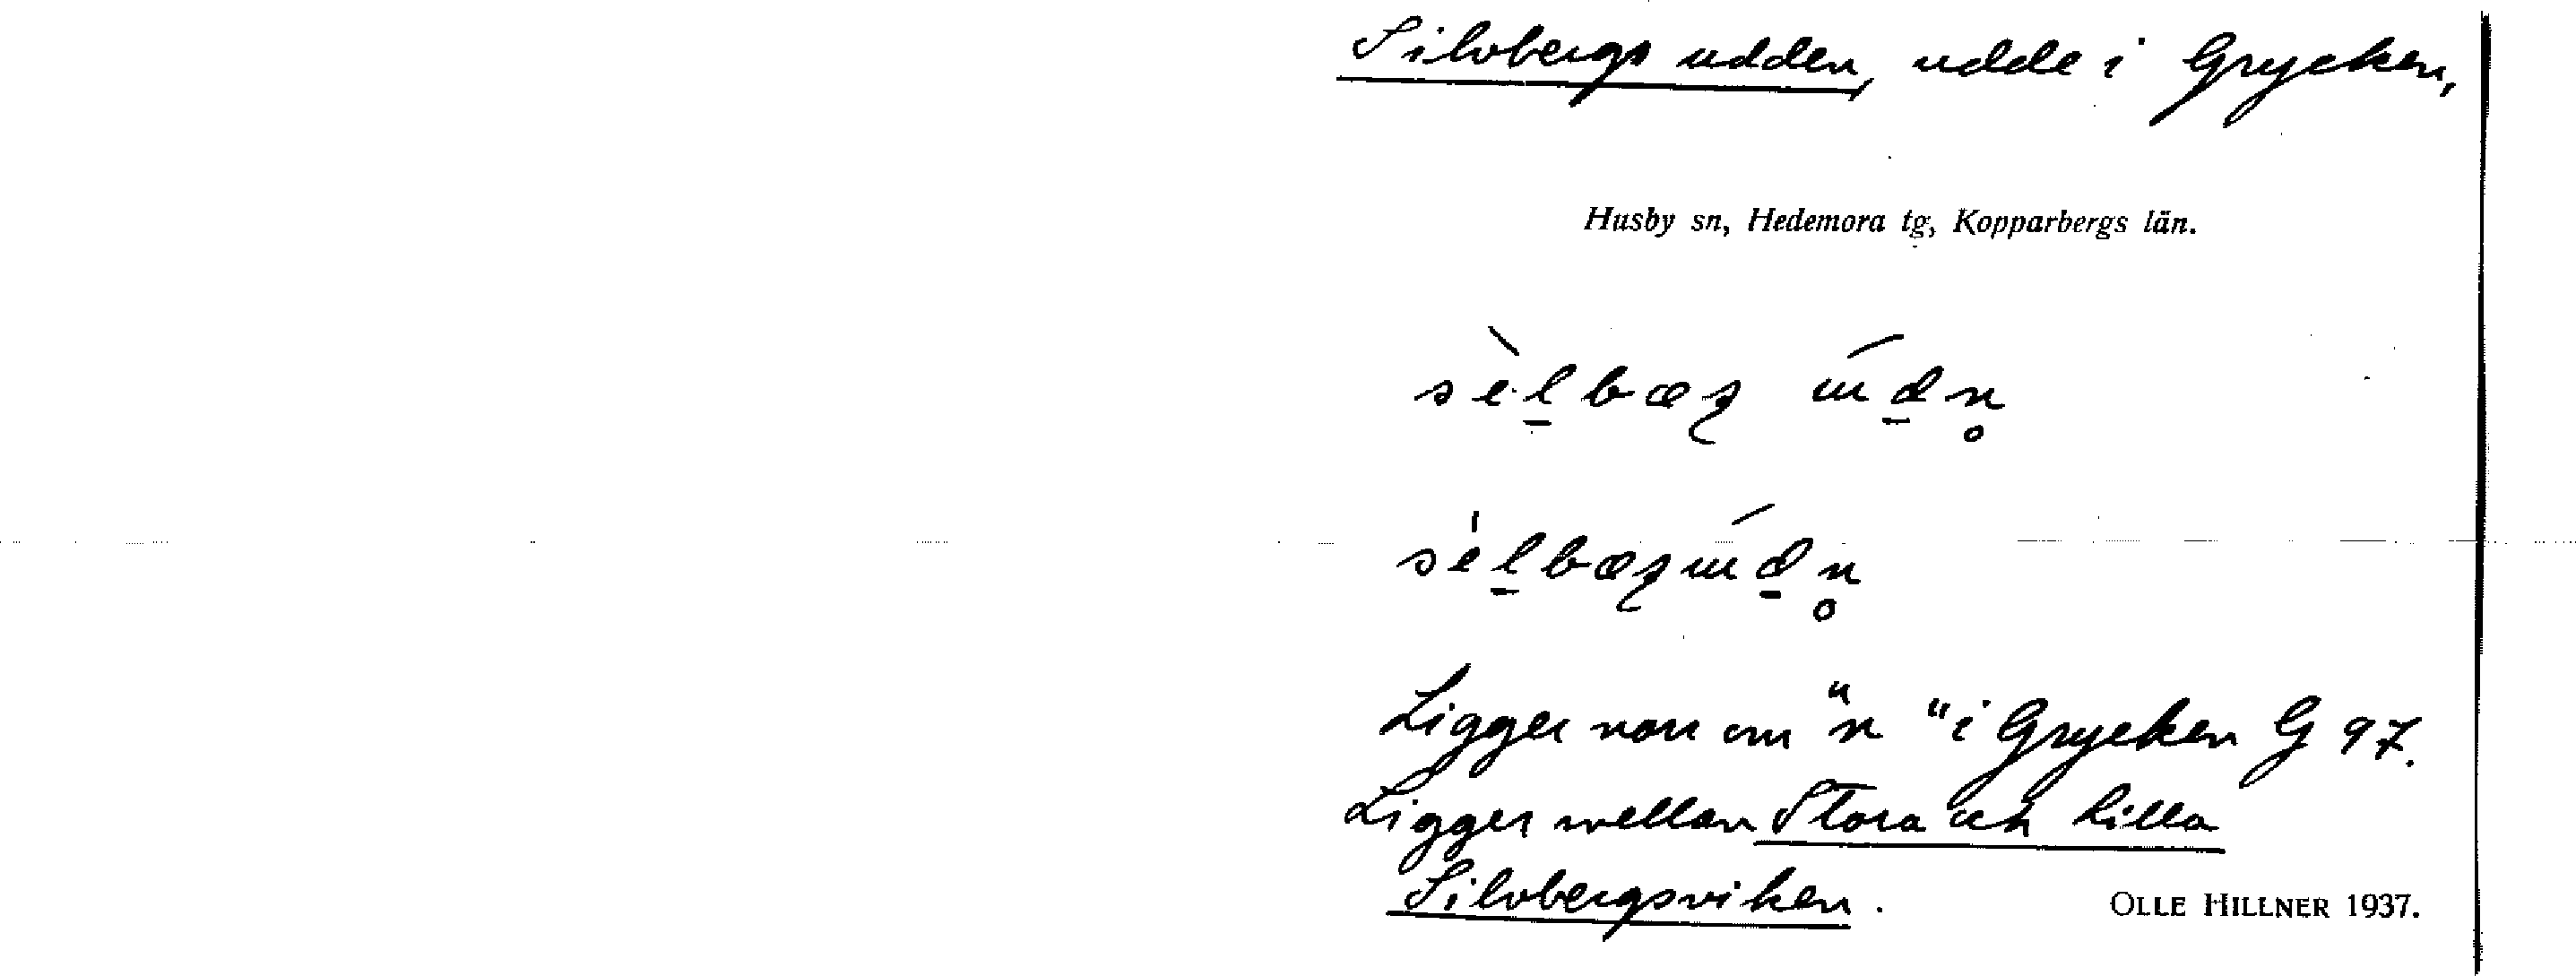 Silvbergs udden, udde i Grycken,
Husby sn, Hedemora tg, Kopparbergs län.
Ligger norr om "n" i Grycken G 97.
Ligger mellan Stora och Lilla
Silvbergsviken.
OLLE HILLNER 1937.